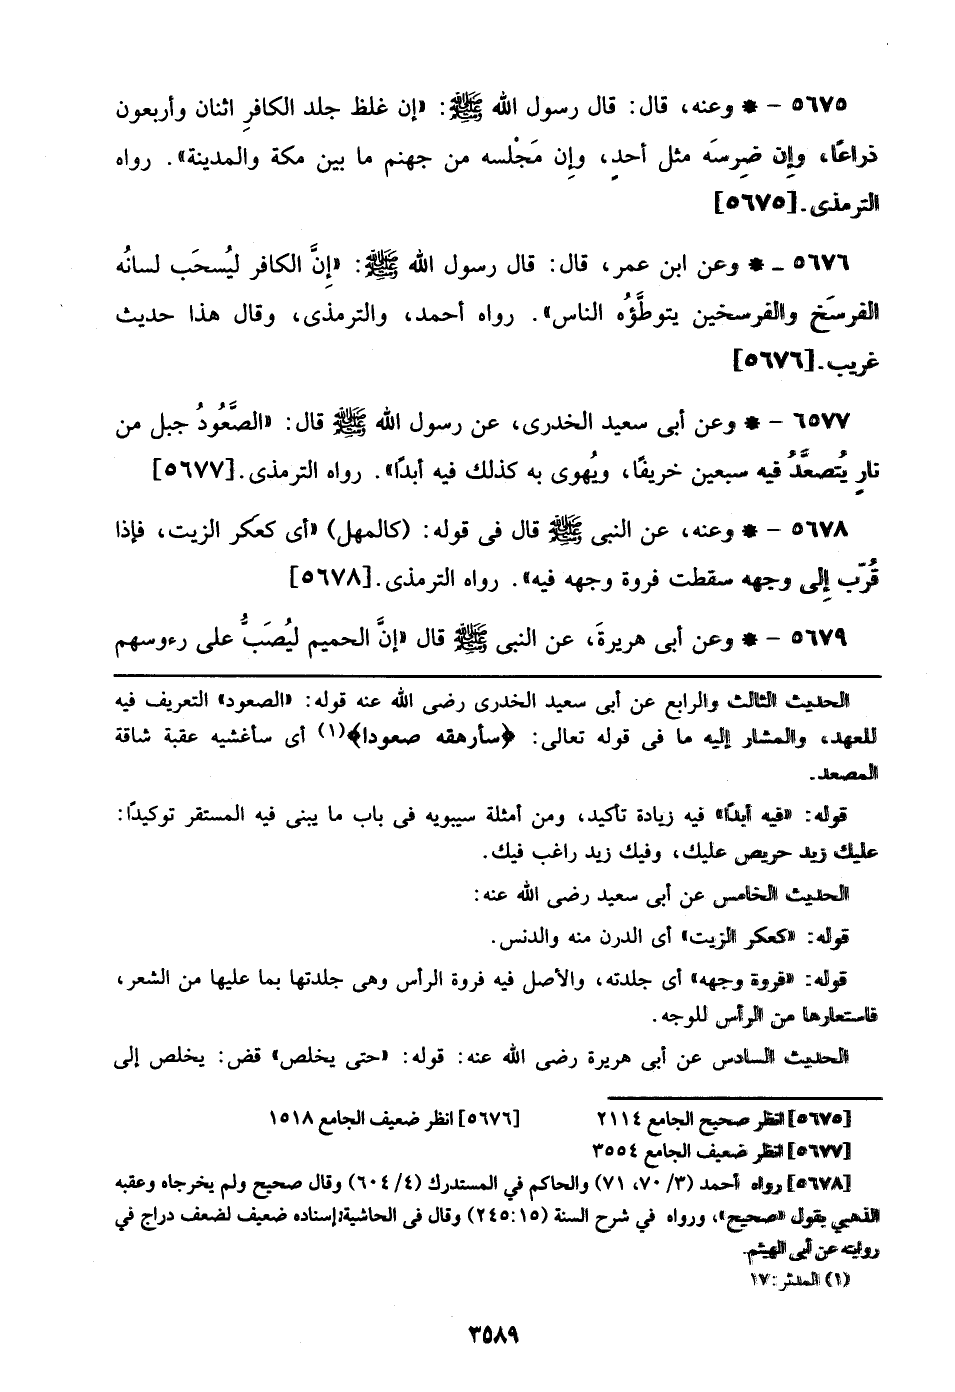 ٥٦٧٥ – * وعنه، قال: قال رسول الله ﷺ: «إن غلظ جلد الكافرِ اثنان وأربعون
ذراعًا، وإن ضِرسَه مثل أحدٍ، وإن مَجْلسه من جهنم ما بين مكة والمدينة». رواه
الترمذى.[٥٦٧٥]
٥٦٧٦ – * وعن ابن عمر، قال: قال رسول الله ﷺ: «إنَّ الكافر ليُسحَب لسانُه
الفرسَخ والفرسخين يتوطَّؤُه الناس». رواه أحمد، والترمذى، وقال هذا حديث
غريب.[٥٦٧٦]
٦٥٧٧ – * وعن أبى سعيد الخدرى، عن رسول الله ﷺ قال: «الصَّعُودُ جبل من
نارٍ يُتصعَّدُ فيه سبعين خريفًا، ويُهوى به كذلك فيه أبدًا». رواه الترمذى.[٥٦٧٧]
٥٦٧٨ – * وعنه، عن النبى ﷺ قال فى قوله: (كالمهل) «أى كعكَر الزيت، فإذا
قُرِّب إلى وجهه سقطت فروة وجهه فيه». رواه الترمذى.[٥٦٧٨]
٥٦٧٩ – * وعن أبى هريرةَ، عن النبى ﷺ قال «إنَّ الحميم ليُصَبُّ على رءوسهم
الحديث الثالث والرابع عن أبى سعيد الخدرى رضى الله عنه قوله: «الصعود» التعريف فيه
للعهد، والمشار إليه ما فى قوله تعالى: ﴿سأرهقه صعودا﴾(١) أى سأغشيه عقبة شاقة
المصعد.
قوله: «فيه أبدًا» فيه زيادة تأكيد، ومن أمثلة سيبويه فى باب ما يبنى فيه المستقر توكيدًا:
عليك زيد حريص عليك، وفيك زيد راغب فيك.
الحديث الخامس عن أبى سعيد رضى الله عنه:
قوله: «كعكر الزيت» أى الدرن منه والدنس.
قوله: «فروة وجهه» أى جلدته، والأصل فيه فروة الرأس وهى جلدتها بما عليها من الشعر،
فاستعارها من الرأس للوجه.
الحديث السادس عن أبى هريرة رضى الله عنه: قوله: «حتى يخلص» قض: يخلص إلى
[٥٦٧٥] انظر صحيح الجامع ٢١١٤ [٥٦٧٦] انظر ضعيف الجامع ١٥١٨
[٥٦٧٧] انظر ضعيف الجامع ٣٥٥٤
[٥٦٧٨] رواه أحمد (٣/ ٧٠، ٧١) والحاكم في المستدرك (٤/ ٦٠٤) وقال صحيح ولم يخرجاه وعقبه
الذهبي بقول «صحيح»، ورواه في شرح السنة (١٥:٢٤٥) وقال فى الحاشية:إسناده ضعيف لضعف دراج في
روايته عن أبى الهيثم.
(١) المدثر:١٧
٣٥٨٩